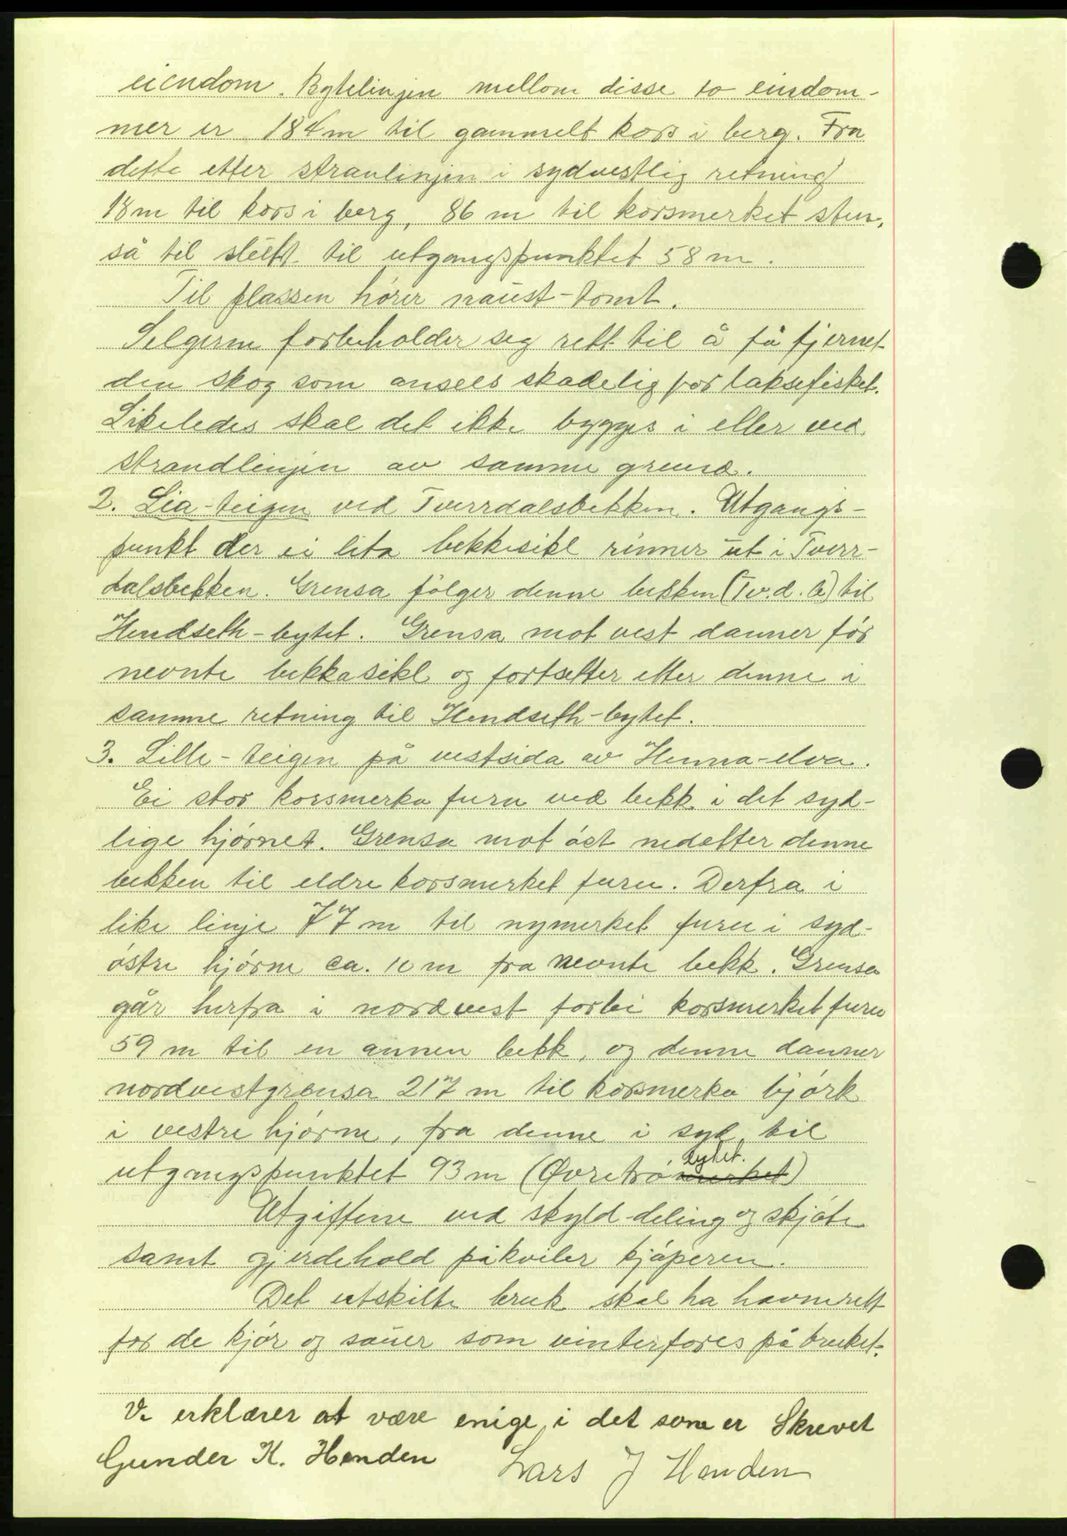 eiendom. Bytelinjen mellom disse to eindom-
mer er 184 m til gammelt kors i berg. Fra
dette etter stranlinjen i sydvestlig retning
18 m til kors i berg, 86 m til korsmerket sten,
så til slutt til utgangspunktet 58 m.
Til plassen hører naust-tomt.
Selgerne forbeholder seg rett til å få fjernet
den skog som ansees skadelig for laksefisket.
Likeledes skal det ikke bygges i eller ved
strandlinjen av samme grund.
2. Lia-teigen ved Tverrdalsbekken. Utgangs-
punkt der ei lita bekkesikl rinner ut i Tverr-
dalsbekken. Grensa følger denne bekken (Tv.d.b) til
Hendseth-bytet. Grensa mot vest danner før
nevnte bekkasikl og fortsetter etter denne i
samme retning til Hendseth-bytet.
3. Lille-teigen på vestsida av Henna-elva.
Ei stor korsmerka furu ved bekk i det syd-
lige hjørnet. Grensa mot øst nedefter denne
bekken til eldre korsmerket furu. Derfra i
like linje 77 m til nymerket furu i syd-
østre hjørne ca. 10 m fra nevnte bekk. Grensa
går herfra i nordvest forbi korsmerket furu
59 m til en annen bekk, og denne danner
nordvestgrensa 217 m til korsmerka bjørk
i vestre hjørne, fra denne i syd til
utgangspunktet 93 m (Øvretrø merket bytet.)
Utgiftene ved skyld-deling og skjøte
samt gjerdehold påkviler kjøperen.
Det utskilte bruk skal ha havnerett
for de kjør og sauer som vinterfores på bruket.
Vi erklærer at være enige i det som er Skrevet
Gunder K. Henden Lars J Henden